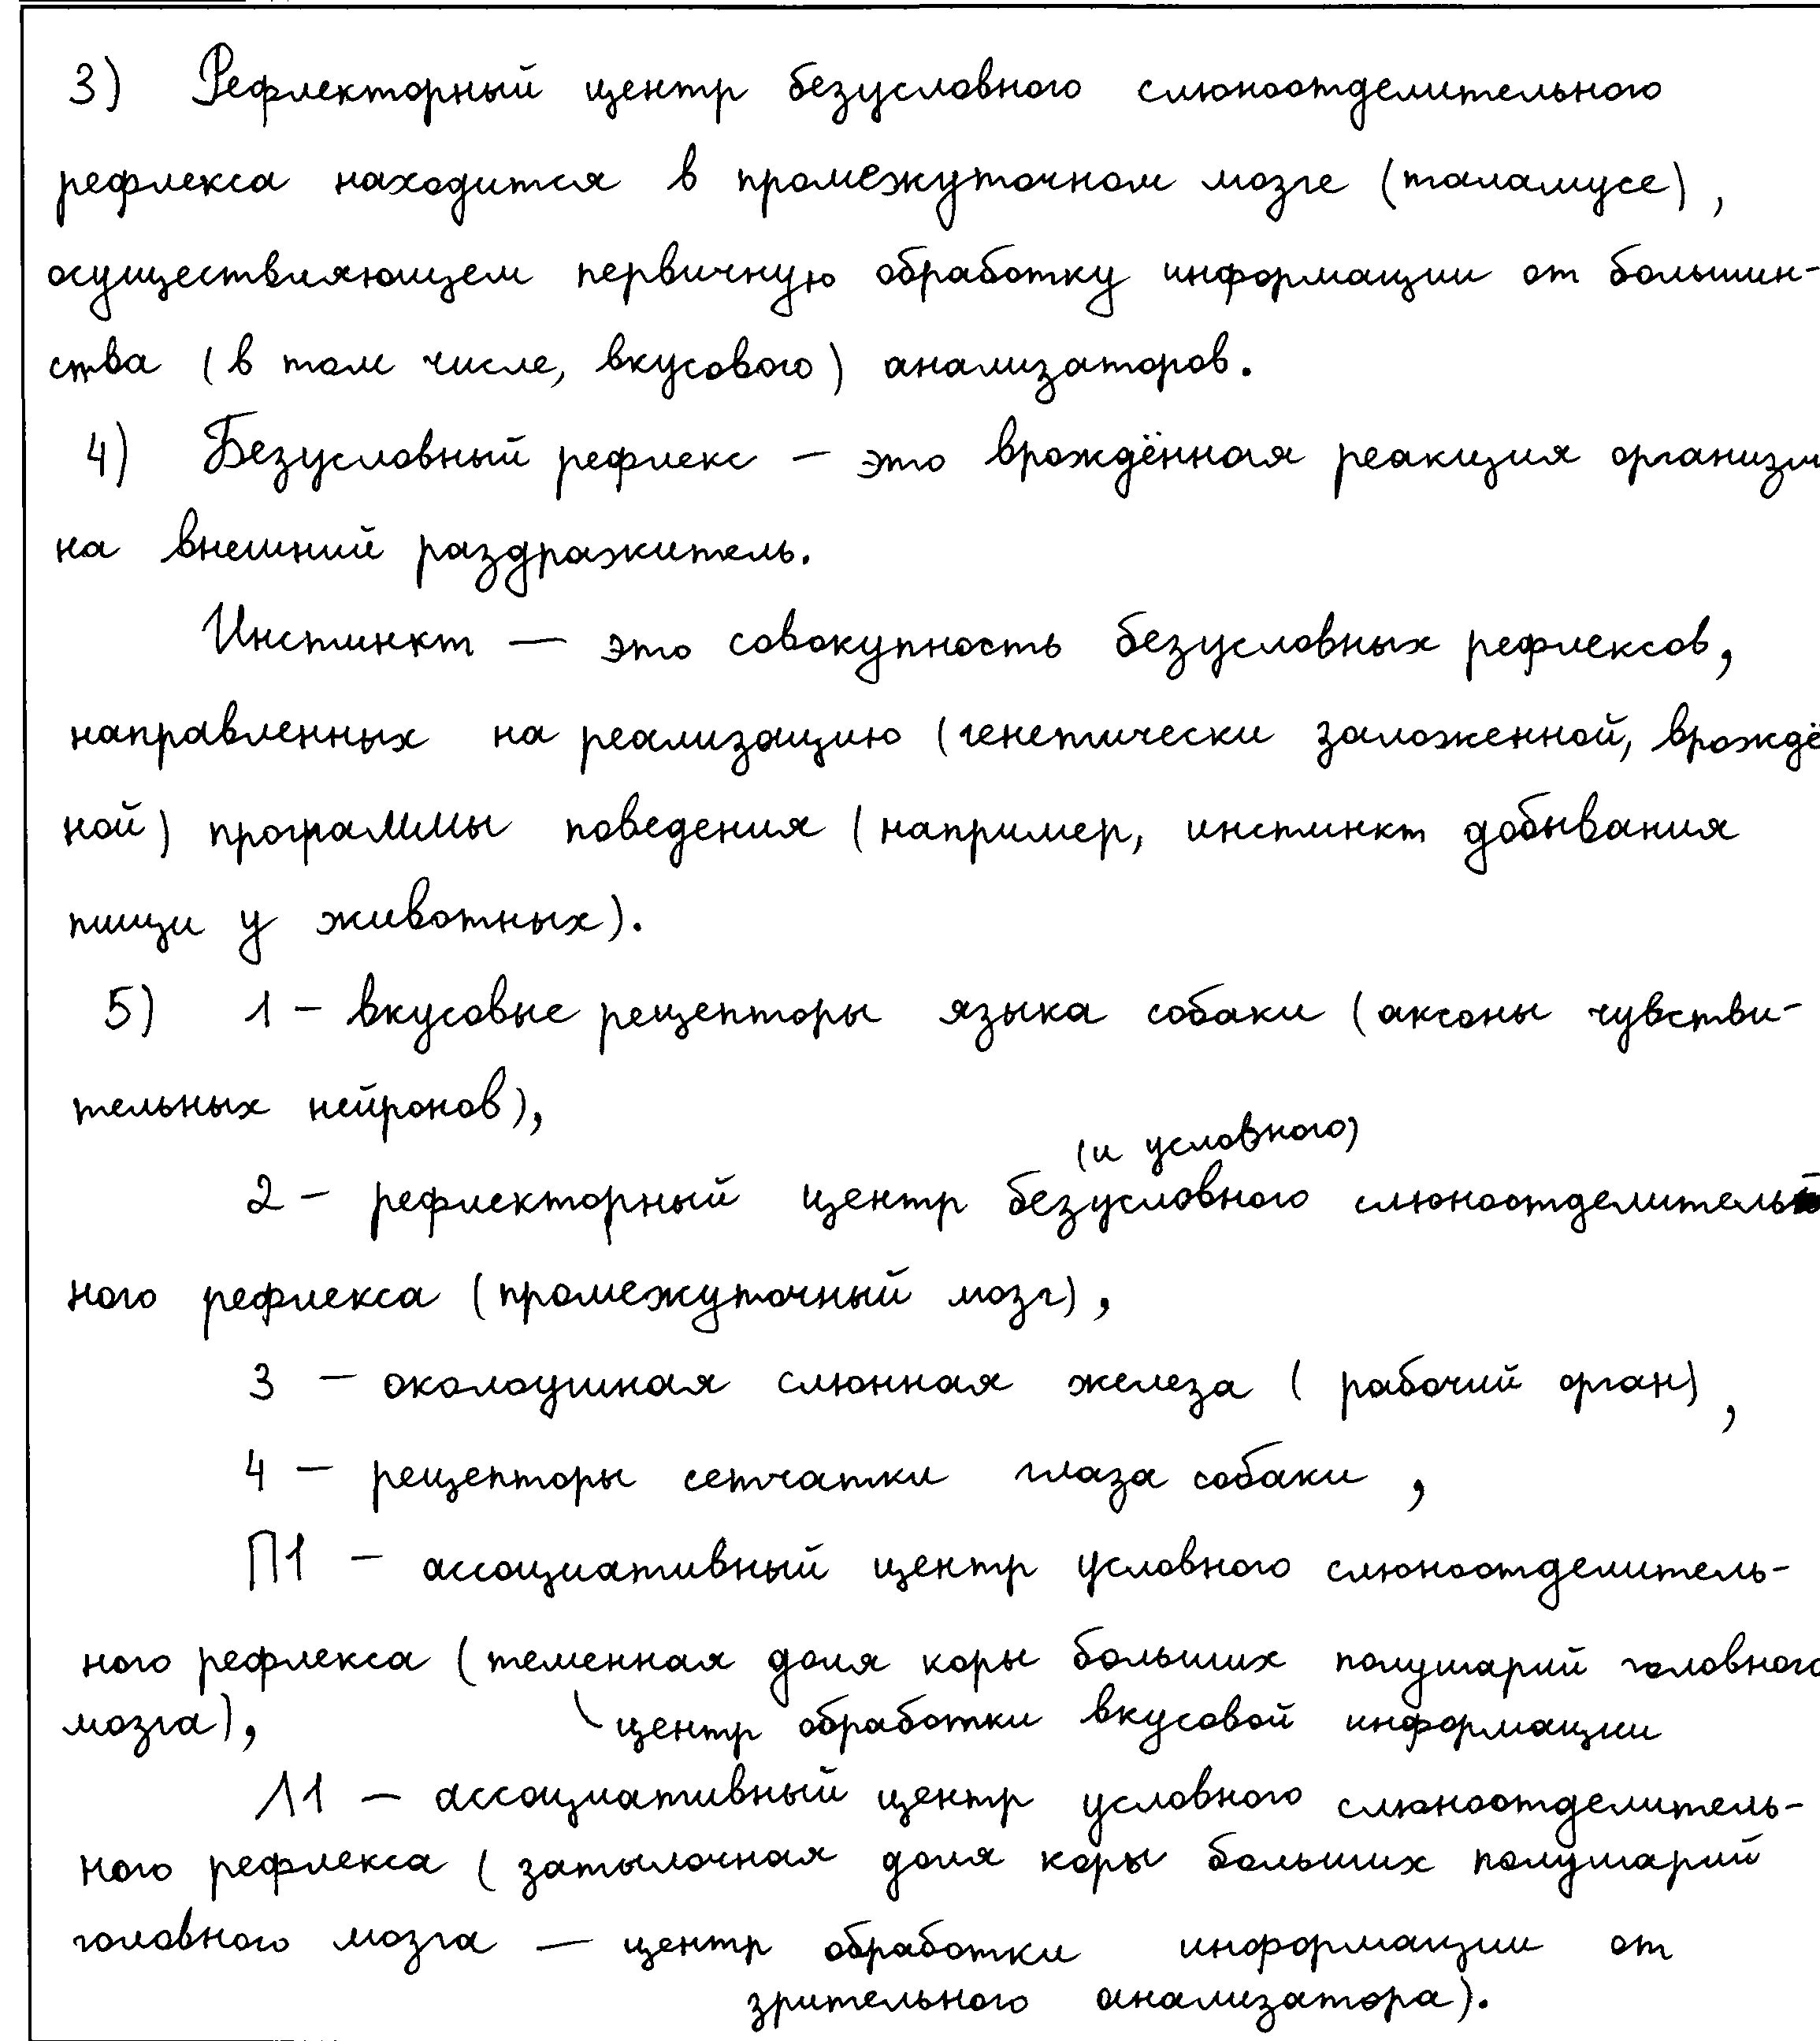 3) Рефлекторный центр безусловного слюноотделительного
рефлекса находится в промежуточном мозге (таламусе),
осуществляющем первичную обработку информации от большин-
ства (в том числе, вкусового) анализаторов.
4) Безусловный рефлекс — это врождённая реакция организм
на внешний раздражитель.
Инстинкт — это совокупность безусловных рефлексов,
направленных на реализацию (генетически заложенной, врождё
ной) программы поведения (например, инстинкт добывания
пищи у животных).
5) 1 – вкусовые рецепторы языка собаки (аксоны чувстви-
тельных нейронов),
(и условного)
2 – рефлекторный центр безусловного слюноотделитель
ного рефлекса (промежуточный мозг),
3 — околоушная слюнная железа (рабочий орган),
4 — рецепторы сетчатки глаза собаки,
П1 — ассоциативный центр условного слюноотделитель-
ного рефлекса (теменная доля коры больших полушарий головного
мозга), \центр обработки вкусовой информации
Л1 — ассоциативный центр условного слюноотделитель-
ного рефлекса (затылочная доля коры больших полушарий
головного мозга — центр обработки информации от
зрительного анализатора).